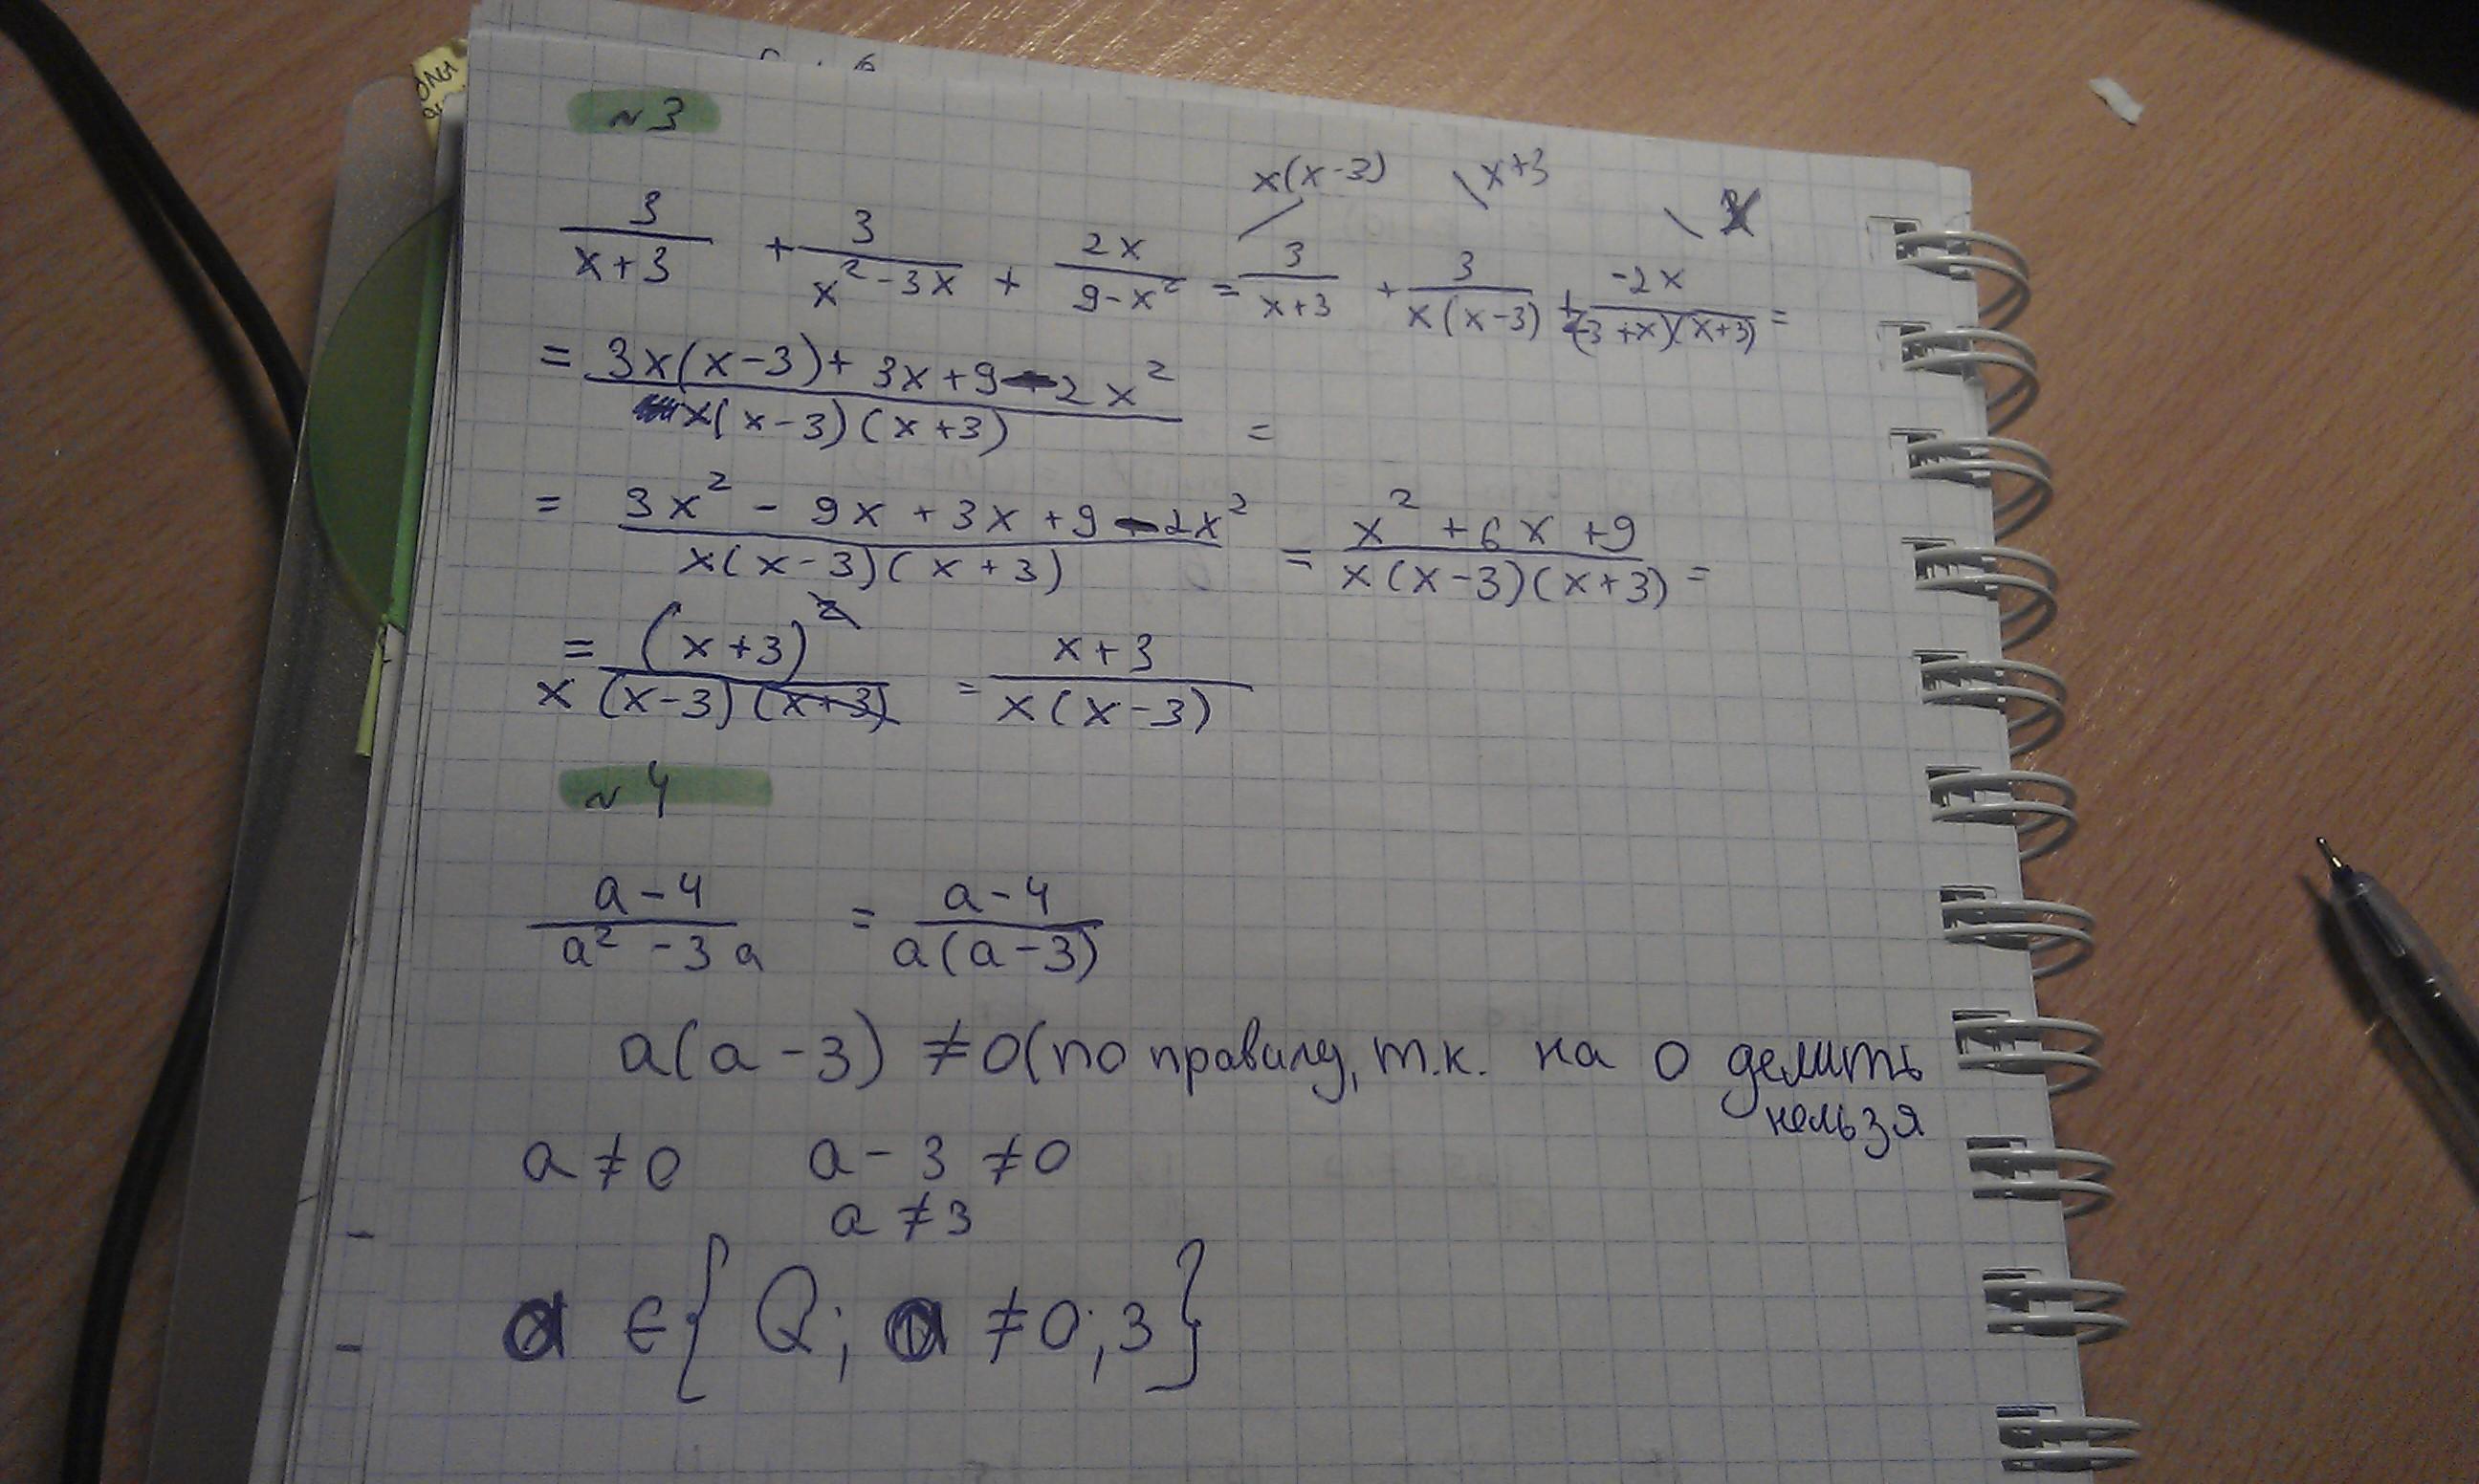 №3
x(x-3) x+3 x
3/(x+3) + 3/(x²-3x) + 2x/(9-x²) = 3/(x+3) + 3/(x(x-3)) + -2x/((-3+x)(x+3)) =
= (3x(x-3)+3x+9-2x²)/(x(x-3)(x+3)) =
= (3x²-9x+3x+9-2x²)/(x(x-3)(x+3)) = (x²+6x+9)/(x(x-3)(x+3)) =
= (x+3)²/(x(x-3)(x+3)) = (x+3)/(x(x-3))
№4
(a-4)/(a²-3a) = (a-4)/(a(a-3))
a(a-3) ≠0(по правилу, т.к. на 0 делить
нельзя
a≠0 a-3≠0
a≠3
a ∈{Q; a ≠0;3}